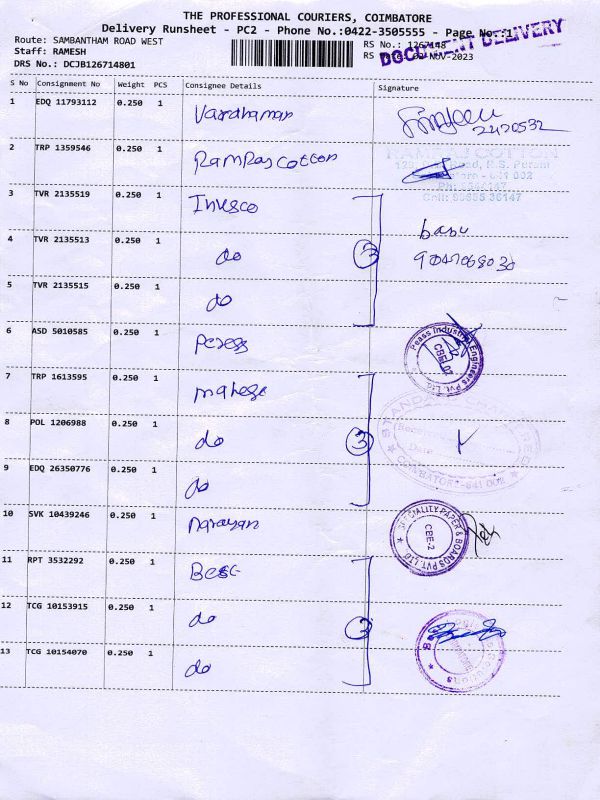 THE PROFESSIONAL COURIERS, COIMBATORE
Delivery Runsheet - PC2 - Phone No.:0422-3505555 - Page No.:1
DOCUMENT DELIVERY
Route: SAMBANTHAM ROAD WEST
RS No.: 1267148
Staff: RAMESH
RS NOV-2023
DRS No.: DCJB126714801
S No Consignment No Weight PCS Consignee Details Signature
1 EDQ 11793112 0.250 1 Vardhaman
2420532
2 TRP 1359546 0.250 1 Ramraj cotton
RAMRAJ COTTON
Cell:
3 TVR 2135519 0.250 1 Invesco
babu
4 TVR 2135513 0.250 1 do 3
5 TVR 2135515 0.250 1 do
6 ASD 5010585 0.250 1 Peass
Peass Industrial Engineers Pvt. Ltd.
7 TRP 1613595 0.250 1
8 POL 1206988 0.250 1 do 3
Date
COIMBATORE-641
9 EDQ 26350776 0.250 1 do
10 SVK 10439246 0.250 1 Narayan
SPECIALITY PAPER & BOARDS PVT. LTD
CBE-2
11 RPT 3532292 0.250 1
12 TCG 10153915 0.250 1 do 3
13 TCG 10154070 0.250 1 do